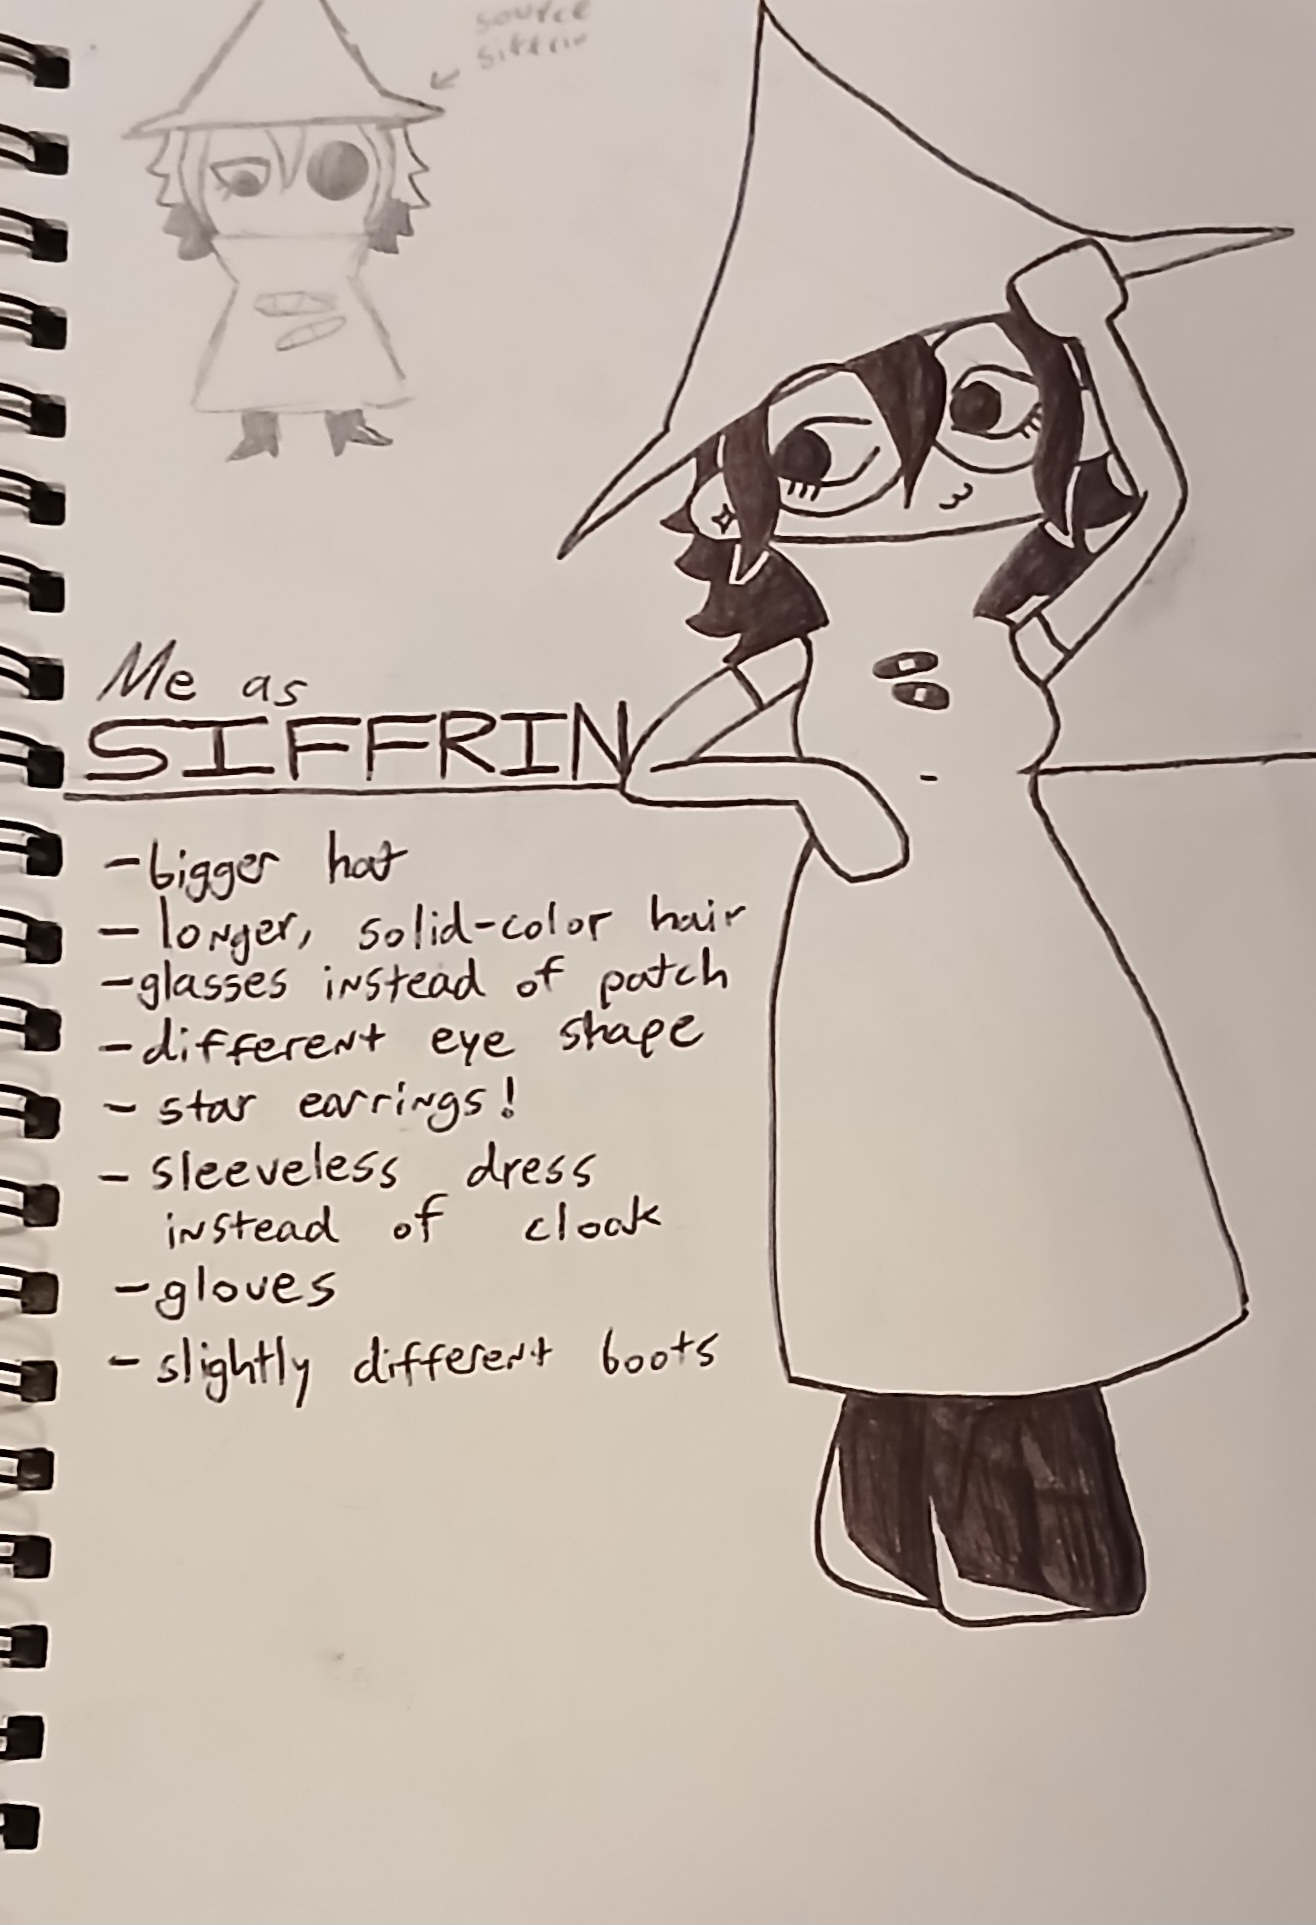 source
siffrin
Me as
SIFFRIN
- bigger hat
- longer, solid-color hair
- glasses instead of patch
- different eye shape
- star earrings!
- sleeveless dress
instead of cloak
- gloves
- slightly different boots